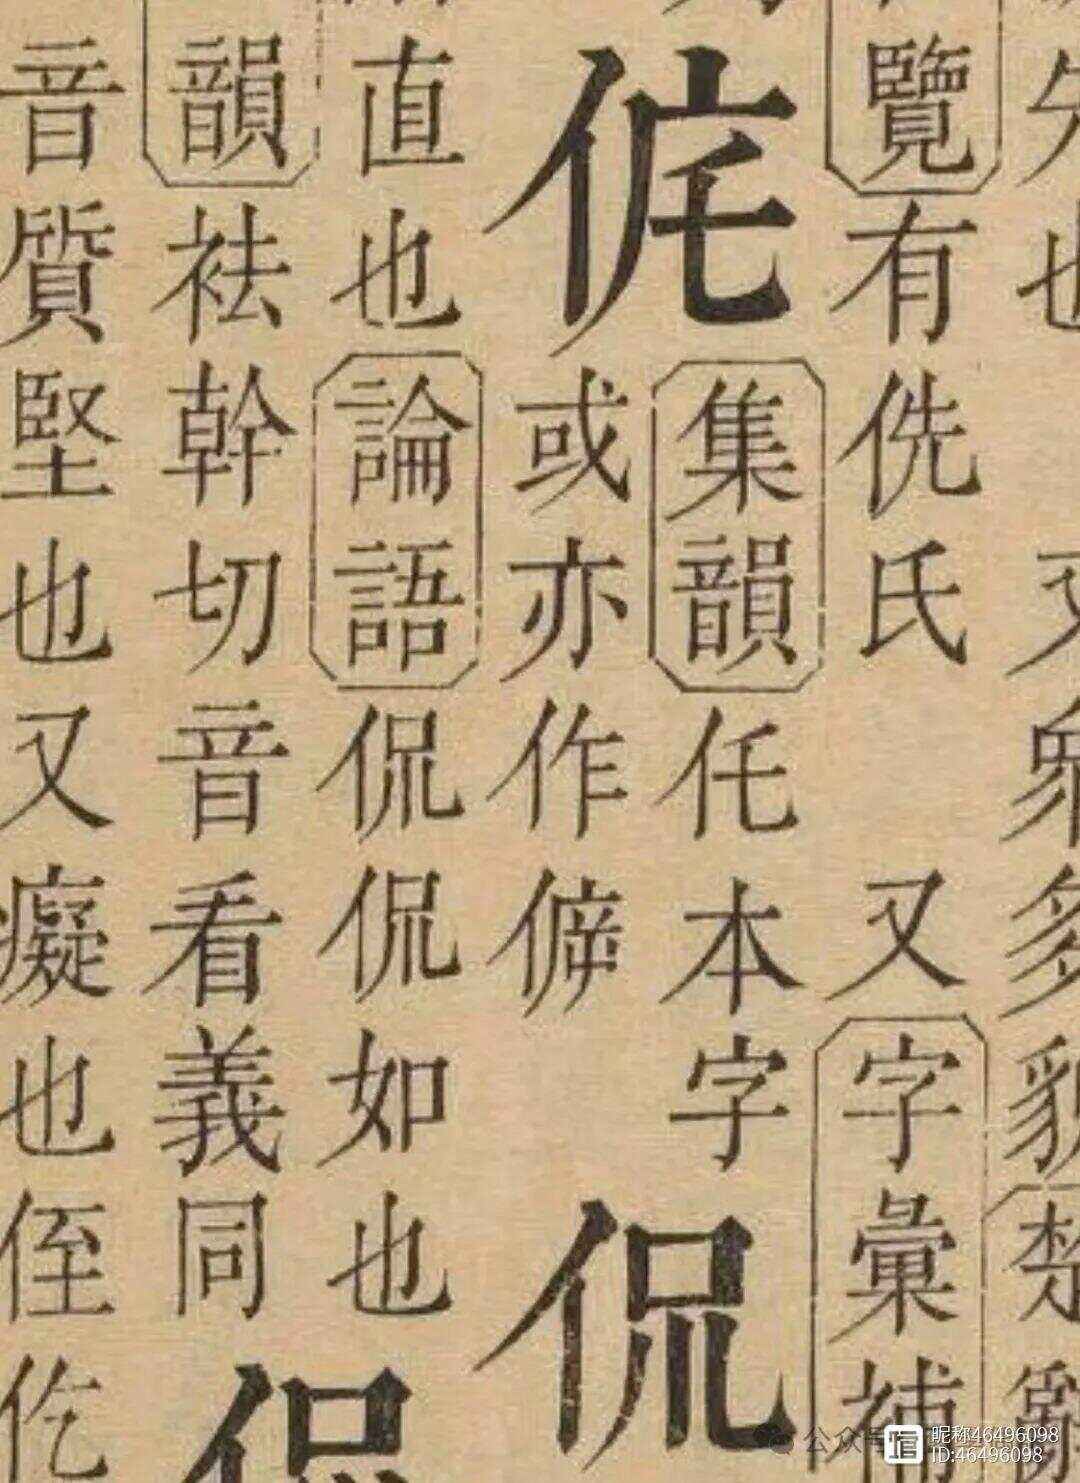 也又衆多貌楚辭
覽有侁氏又字彙補
侂集韻仛本字
或亦作
侃
直也論語侃侃如也
韻袪幹切音看義同
侃
音質堅也又癡也侄仡
公众号
昵称46496098
ID:46496098